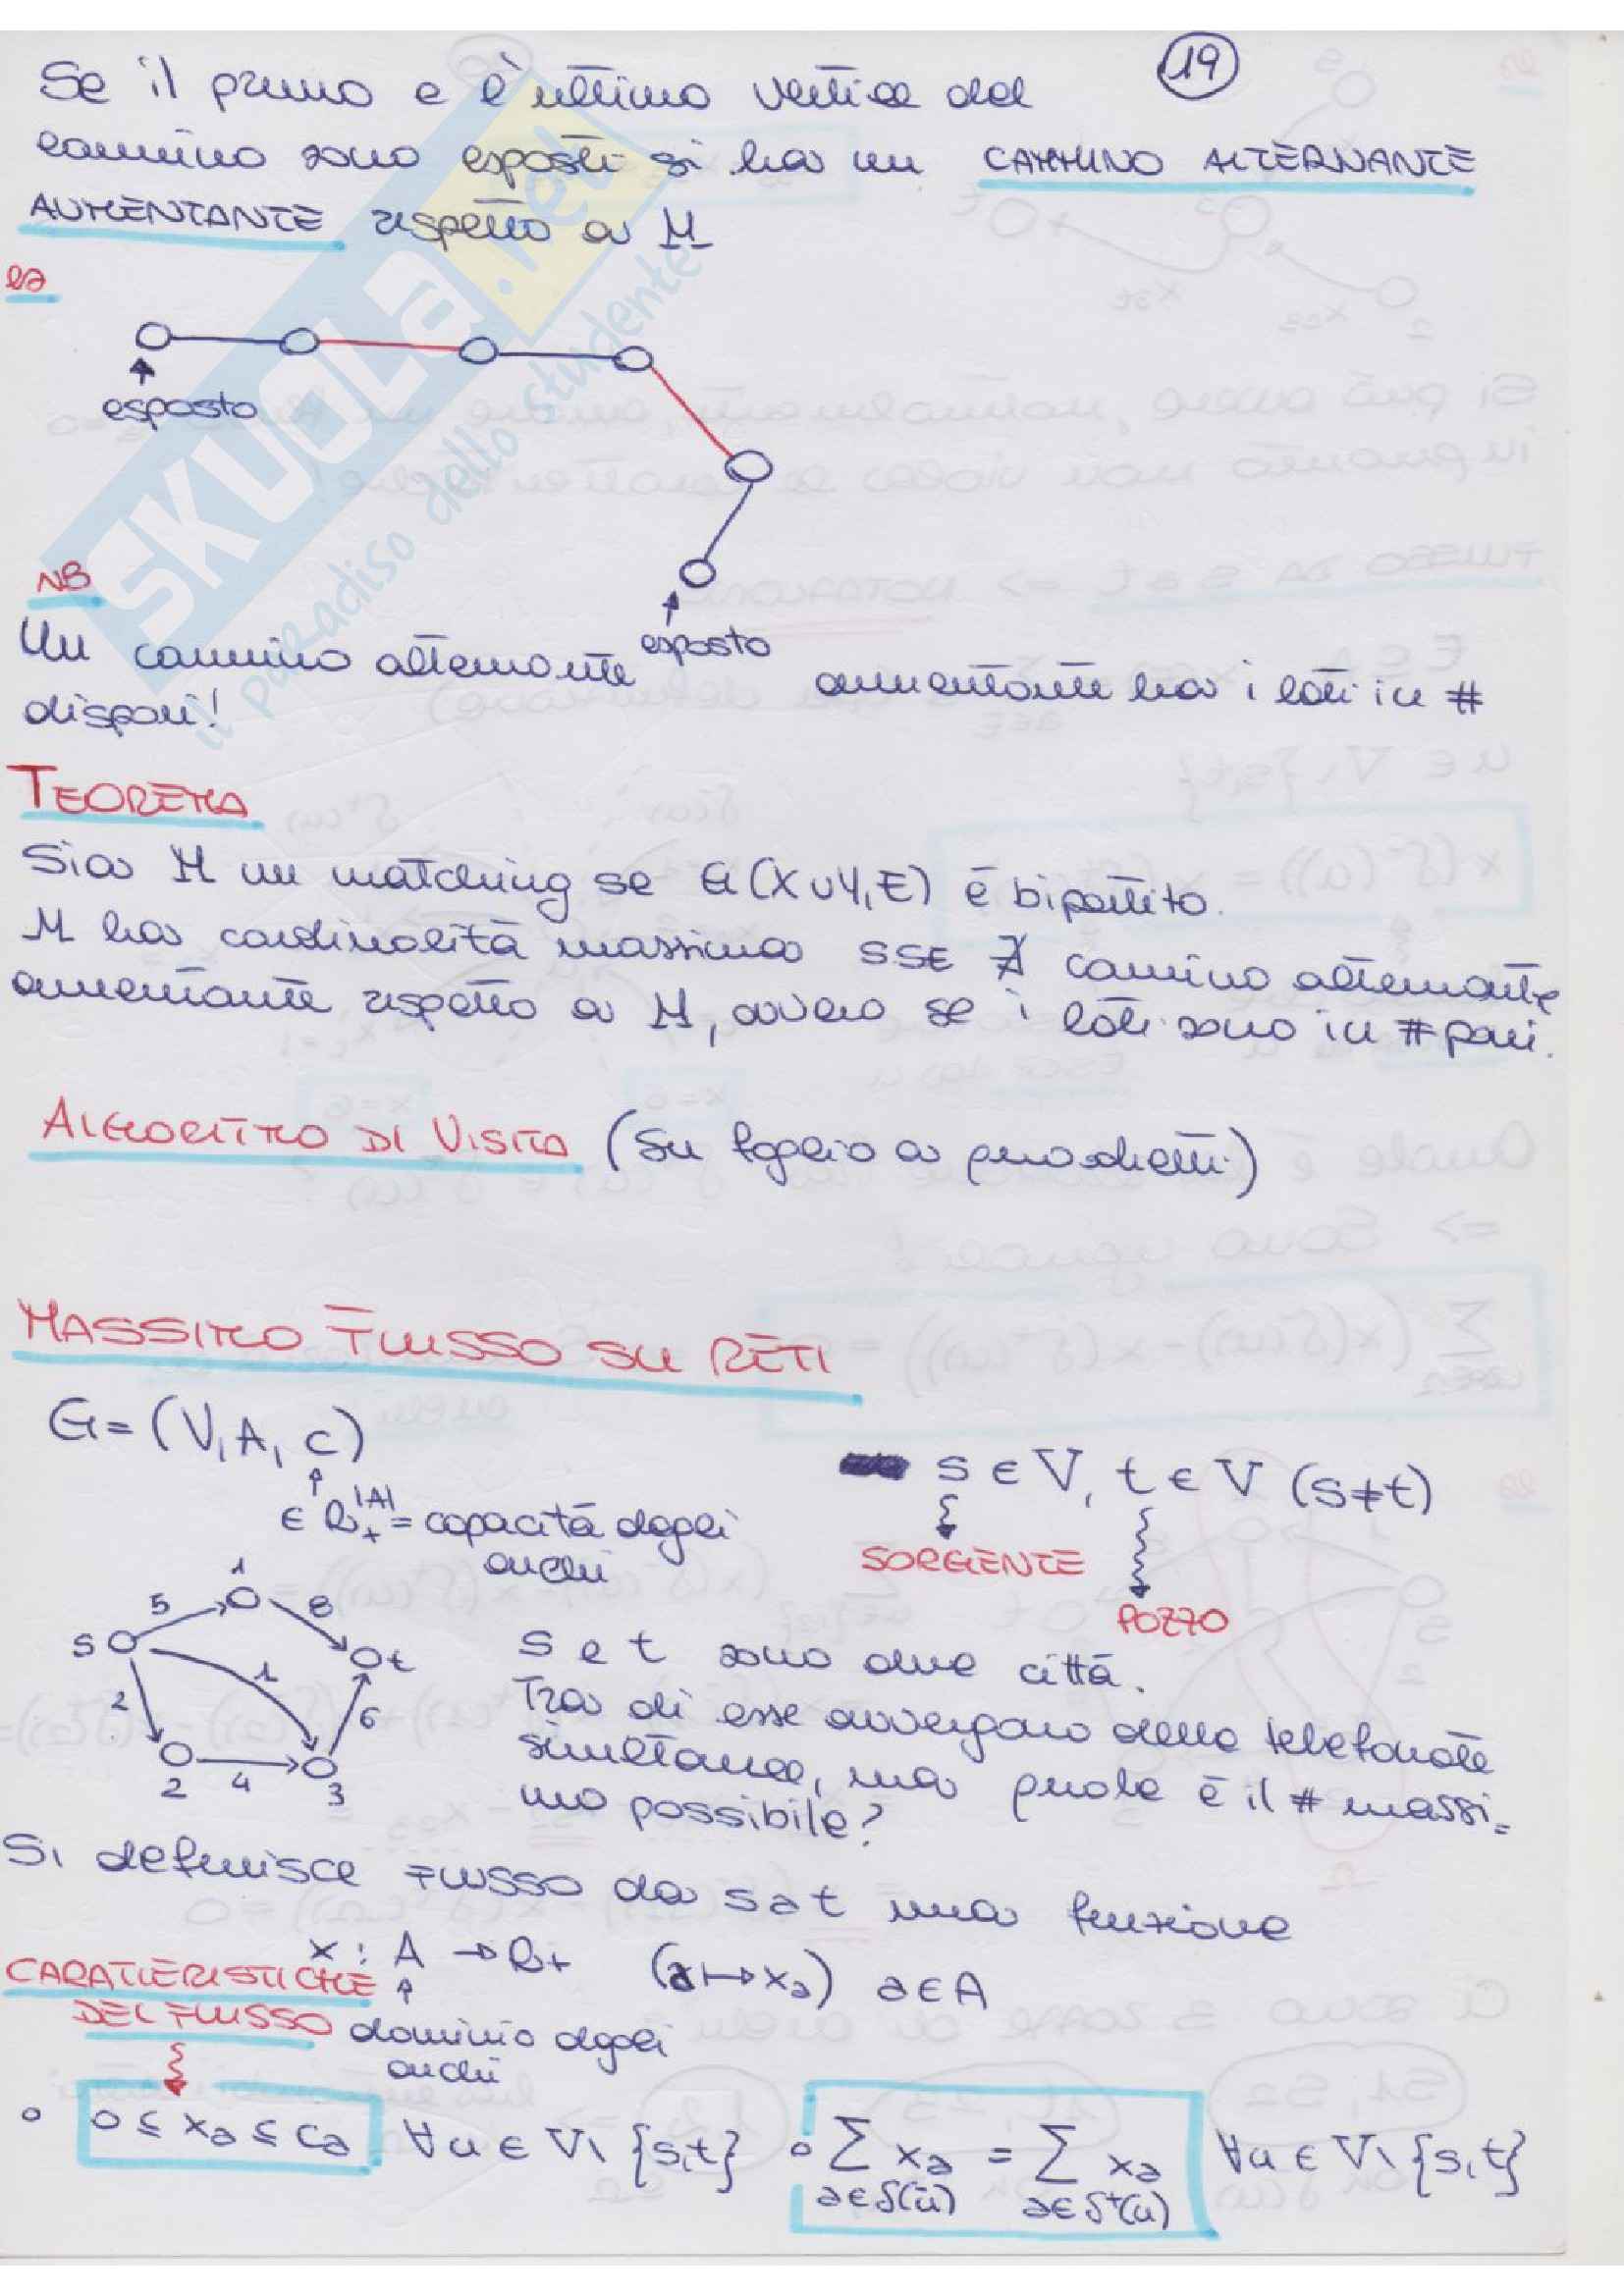 19
Se il primo e l'ultimo vertice del
cammino sono esposti si ha un CAMMINO ALTERNANTE
AUMENTANTE rispetto a M
es
esposto
esposto
NB
Un cammino alternante aumentante ha i lati in #
dispari!
TEOREMA
Sia M un matching se G(X∪Y,E) è bipartito.
M ha cardinalità massima SSE ∄ cammino alternante
aumentante rispetto a M, ovvero se i lati sono in # pari.
ALGORITMO DI VISITA (su foglio a quadretti)
MASSIMO FLUSSO SU RETI
G=(V,A,c)
∈ R₊^|A| = capacità degli
archi
s ∈ V, t ∈ V (s≠t)
SORGENTE
POZZO
1
5 8
s t
1
2 6
2 4 3
s e t sono due città.
Tra di esse avvengono delle telefonate
simultanee, ma quale è il # massi=
mo possibile?
Si definisce FLUSSO da s a t una funzione
x : A → R+ (a↦xa) a∈A
CARATTERISTICHE
DEL FLUSSO
dominio degli
archi
0 ≤ xa ≤ ca ∀u ∈ V\{s,t} ∑ xa = ∑ xa ∀u ∈ V\{s,t}
a∈δ⁻(u) a∈δ⁺(u)
SKUOLA.net
il paradiso dello studente